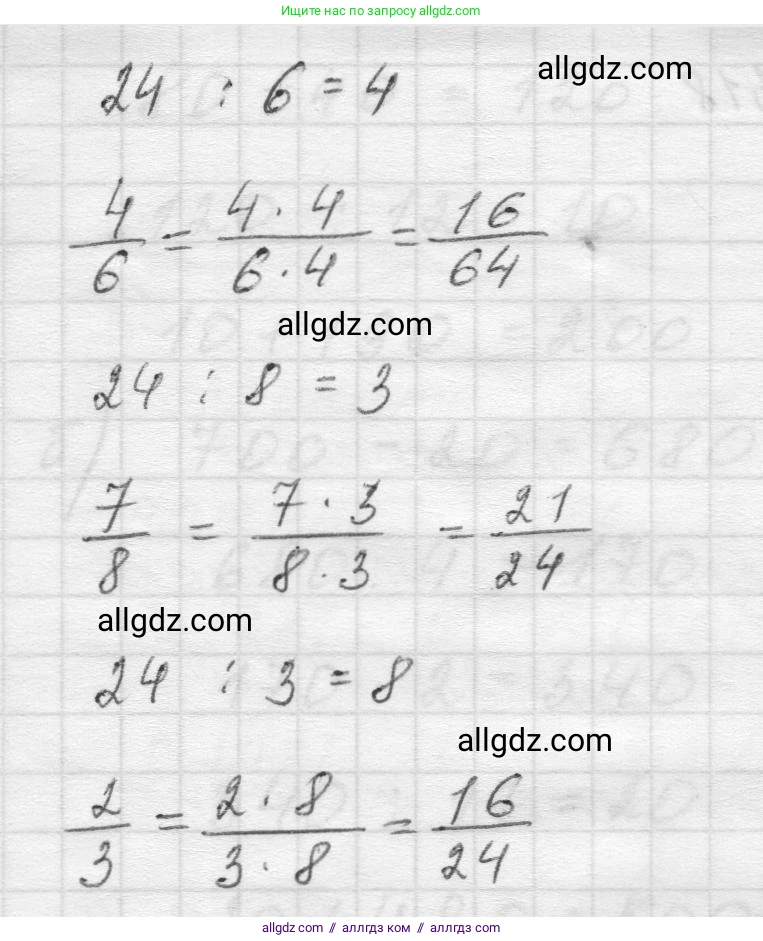 Ищите по запросу allgdz.com
24 : 6 = 4
allgdz.com
4/6 = 4 · 4/6 · 4 = 16/64
allgdz.com
24 : 8 = 3
7/8 = 7 · 3/8 · 3 = 21/24
allgdz.com
24 : 3 = 8
allgdz.com
2/3 = 2 · 8/3 · 8 = 16/24
allgdz.com // аллгдз ком // allgdz.com